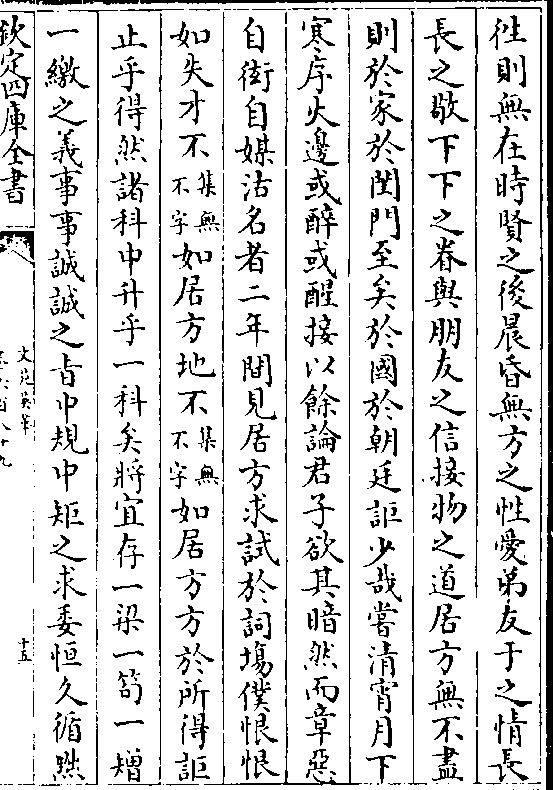 徃則無在時賢之後晨昏無方之性愛弟友于之情長
長之敬下下之眷與朋友之信接物之道居方無不盡
則於家於閨門至矣於國於朝廷詎少哉嘗清宵月下
寒序火邊或醉或醒接以餘論君子欲其暗然而章惡
自衒自媒沽名者二年間見居方求試於詞塲僕恨恨
如失才不集無不字如居方地不集無不字如居方方於所得詎
止乎得然諸科中升乎一科矣將宜存一梁一笱一矰
一繳之義事事誠誠之旨中規中矩之求委恒久循㸃
欽定四庫全書
文苑英華
卷六百八十九
十五